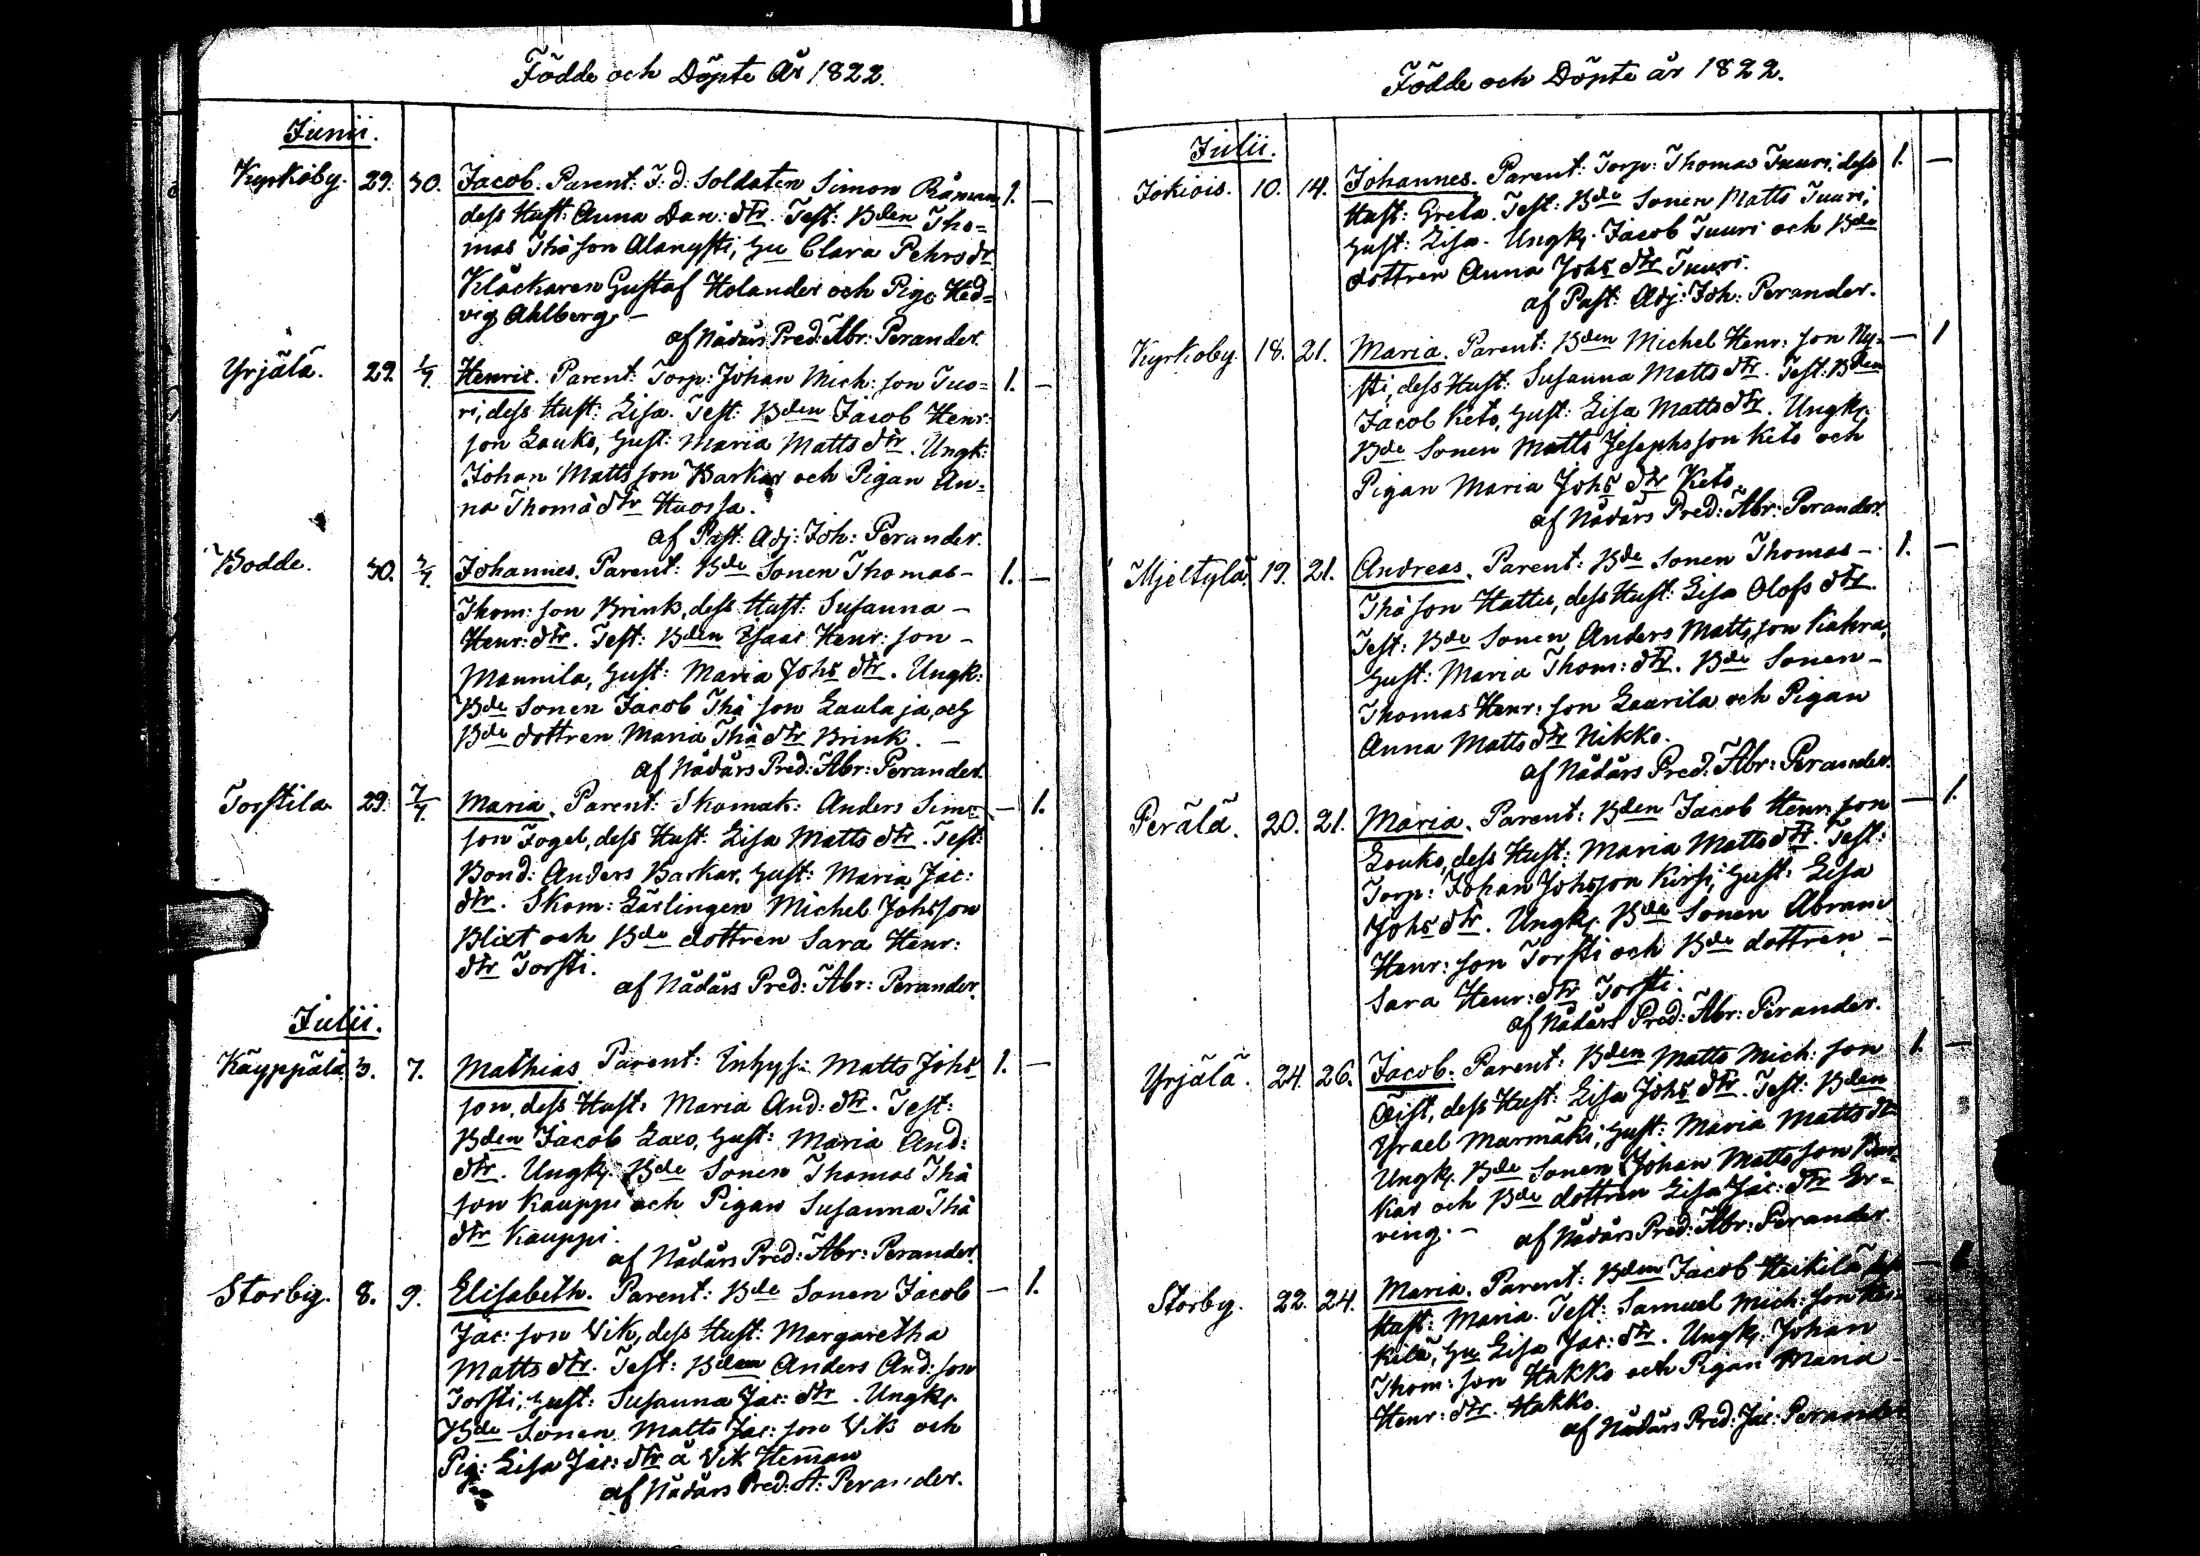 Födde och Döpte År 1822.
Junii.
Kyrkoby. 29. 30. Jacob. Parent: F. d. Soldaten Simon Råman 1. —
dess Hust: Anna Dan: dtr. Test: Bden Tho=
mas Thåson Alanysti, Hu Clara Pehrs dr
Klåckaren Gustaf Holander och Pig. Hed=
vig Ahlberg. —
af Nådårs Pred: Abr: Perander.
Yrjälä. 29. 1/7. Henric. Parent: Torp: Johan Mich: son Tuo= 1. —
ri, dess Hust: Lisa. Test: Bden Jacob Henr:
son Louko, Hust: Maria Matts dtr. Ungk:
Johan Mattsson Barkar och Pigan An=
na Thomå dtr Huossa.
af Past: Adj: Joh: Perander.
Bodde. 30. 7/7. Johannes. Parent: Bde Sonen Thomas — 1. —
Thom: son Brink, dess Hust: Susanna —
Henr: dtr. Test: Bden Isaac Henr: son —
Mannila, Hust: Maria Johs dtr. Ungk:
Bde Sonen Jacob Thå son Laulaja, och
Bde dottren Maria Thå dtr Brink. —
af Nådårs Pred: Abr: Perander.
Torstila. 29. 7/7. Maria. Parent: Skomak: Anders Sim: — 1.
son Fogel, dess Hust: Lisa Matts dtr. Test:
Bond: Anders Barkar, Hust: Maria Jac:
dtr. Skom: Lärlingen Michel Johsson
Blixt och Bde dottren Sara Henr:
dtr Torsti.
af Nådårs Pred: Abr: Perander.
Julii.
Käyppälä 3. 7. Mathias. Parent: Inhys: Matts Johs 1. —
son, dess Hust: Maria And: dtr. Test:
Bden Jacob Laxo, Hust: Maria And:
dtr. Ungk. Bde Sonen Thomas Thå
son Kauppi och Pigan Susanna Thå
dtr Kauppi.
af Nådårs Pred: Abr: Perander.
Storby. 8. 9. Elisabeth. Parent: Bde Sonen Jacob — 1.
Jac: son Vik, dess Hust: Margaretha
Matts dtr. Test: Bden Anders And: son
Torsti, Hust: Susanna Jac: dtr. Ungk.
Bde Sonen Matts Jac: son Vik och
Pig: Lisa Jac: dtr å Vik Heman
af Nådårs Pred: A: Perander.
Födde och Döpte år 1822.
Julii.
Jokiois. 10. 14. Johannes. Parent: Torp: Thomas Tuuri, dess 1. —
Hust: Greta. Test: Bde Sonen Matts Tuuri,
Hust: Lisa. Ungk. Jacob Tuuri och Bde
dottren Anna Johs dtr Tuuri.
af Past: Adj: Joh: Perander.
Kyrkoby. 18. 21. Maria. Parent: Bden Michel Henr: son Ny= — 1
sti, dess Hust: Susanna Matts dtr. Test: Bden
Jacob Keto, Hust: Lisa Matts dtr. Ungk.
Bde Sonen Matts Josephsson Keto och
Pigan Maria Johs dtr Keto.
af Nådårs Pred: Abr: Perander.
Mjeltylä 19. 21. Andreas. Parent: Bde Sonen Thomas — 1. —
Thåson Hattu, dess Hust: Lisa Olofs dtr.
Test: Bde Sonen Anders Mattsson Kahra,
Hust: Maria Thom: dtr. Bde Sonen —
Thomas Henr: son Laurila och Pigan
Anna Matts dtr Nikko.
af Nådårs Pred: Abr: Perander.
Perälä. 20. 21. Maria. Parent: Bden Jacob Henr: son — 1.
Louko, dess Hust: Maria Matts dtr. Test:
Torp: Johan Johsson Kirsi, Hust: Lisa
Johs dtr. Ungk. Bde Sonen Abram
Henr: son Torsti och Bde dottren —
Sara Henr: dtr Torsti.
af Nådårs Pred: Abr: Perander.
Yrjälä. 24. 26. Jacob. Parent: Bden Matts Mich: son 1. —
Qvist, dess Hust: Lisa Johs dtr. Test: Bden
Ysrael Marmäki, Hust: Maria Matts dtr
Ungk. Bde Sonen Johan Mattsson Bar=
kar och Bde dottren Lisa Jac: dtr Er=
ving. — af Nådårs Pred: Abr: Perander.
Storby. 22. 24. Maria. Parent: Bden Jacob Heikilä dess — 1
Hust: Maria. Test: Samuel Mich: son Hei=
kilä, Hu Lisa Jac: dtr. Ungk. Johan
Thom: son Hakko och Pigan Maria —
Henr: dtr. Hakko.
af Nådårs Pred: Jac: Perander.